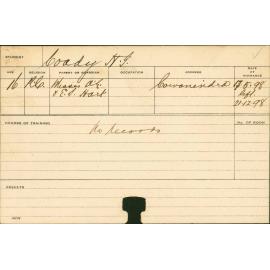 STUDENT Coady N.J.
AGE RELIGION PARENT OR GUARDIAN OCCUPATION ADDRESS DATE OF ENTRANCE
16 R.C. Messrs A. Cowanindra 17.5.98
& E.J. Hart Left
21.12.98
COURSE OF TRAINING No. OF ROOM
No records
RESULTS
NOW